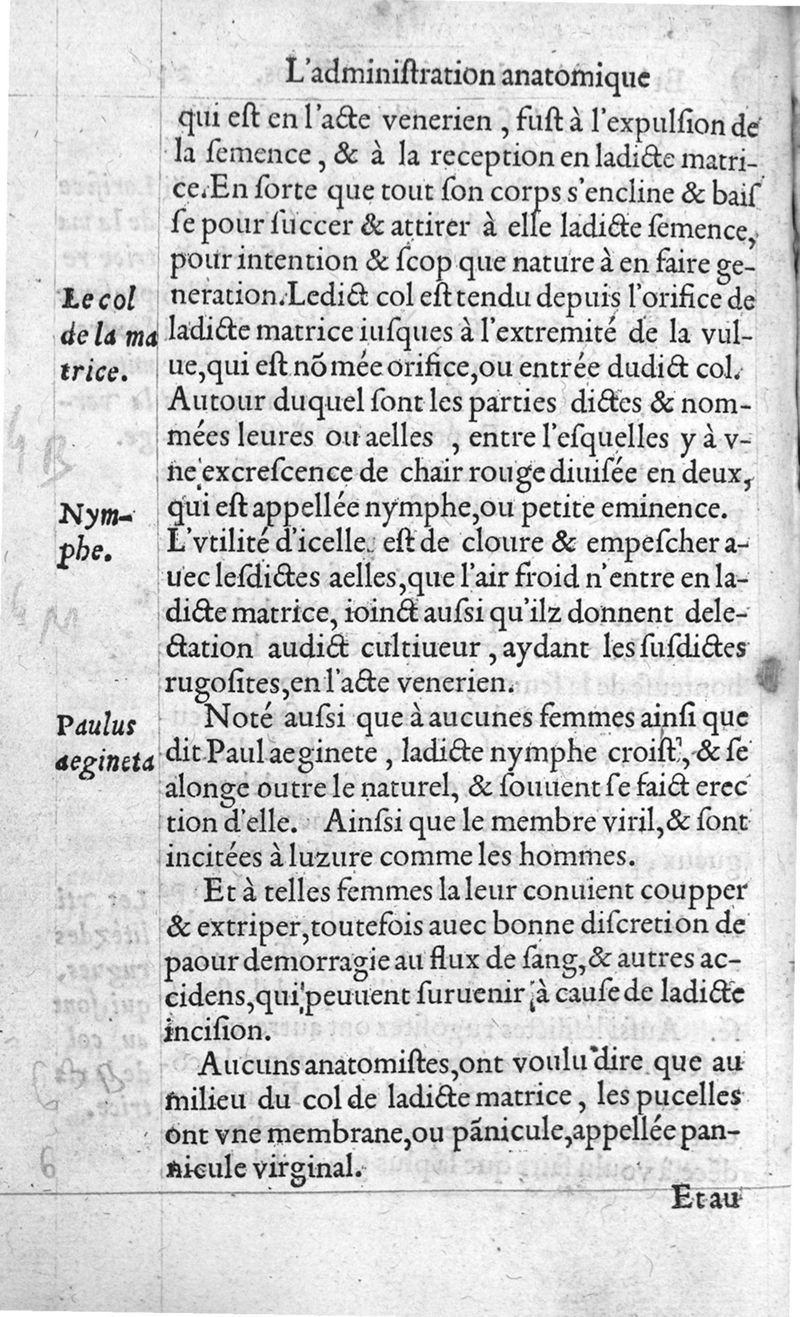 L'adminiſtration anatomique
qui eſt en l'acte venerien, fuſt à l'expulſion de
la ſemence, & à la reception en ladicte matri-
ce. En ſorte que tout ſon corps s'encline & baiſ
ſe pour ſuccer & attirer à elle ladicte ſemence,
pour intention & ſcop que nature à en faire ge-
Le col
neration. Ledict col eſt tendu depuis l'orifice de
de la ma
ladicte matrice iuſques à l'extremité de la vul-
trice.
ue, qui eſt nõmée orifice, ou entrée dudict col.
Autour duquel ſont les parties dictes & nom-
mées leures ou aelles, entre l'eſquelles y à v-
ne excreſcence de chair rouge diuiſée en deux,
Nym-
qui eſt appellée nymphe, ou petite eminence.
phe.
L'vtilité d'icelle eſt de cloure & empeſcher a-
uec leſdictes aelles, que l'air froid n'entre en la-
dicte matrice, ioinct auſsi qu'ilz donnent dele-
ctation audict cultiueur, aydant les ſuſdictes
rugoſites, en l'acte venerien.
Paulus
Noté auſsi que à aucunes femmes ainſi que
aegineta
dit Paul aeginete, ladicte nymphe croiſt, & ſe
alonge outre le naturel, & ſouuent ſe faict erec
tion d'elle. Ainſsi que le membre viril, & ſont
incitées à luzure comme les hommes.
Et à telles femmes la leur conuient coupper
& extriper, toutefois auec bonne diſcretion de
paour demorragie au flux de ſang, & autres ac-
cidens, qui peuuent ſuruenir à cauſe de ladicte
inciſion.
Aucuns anatomiſtes, ont voulu dire que au
milieu du col de ladicte matrice, les pucelles
ont vne membrane, ou pãnicule, appellée pan-
nicule virginal.
Et au